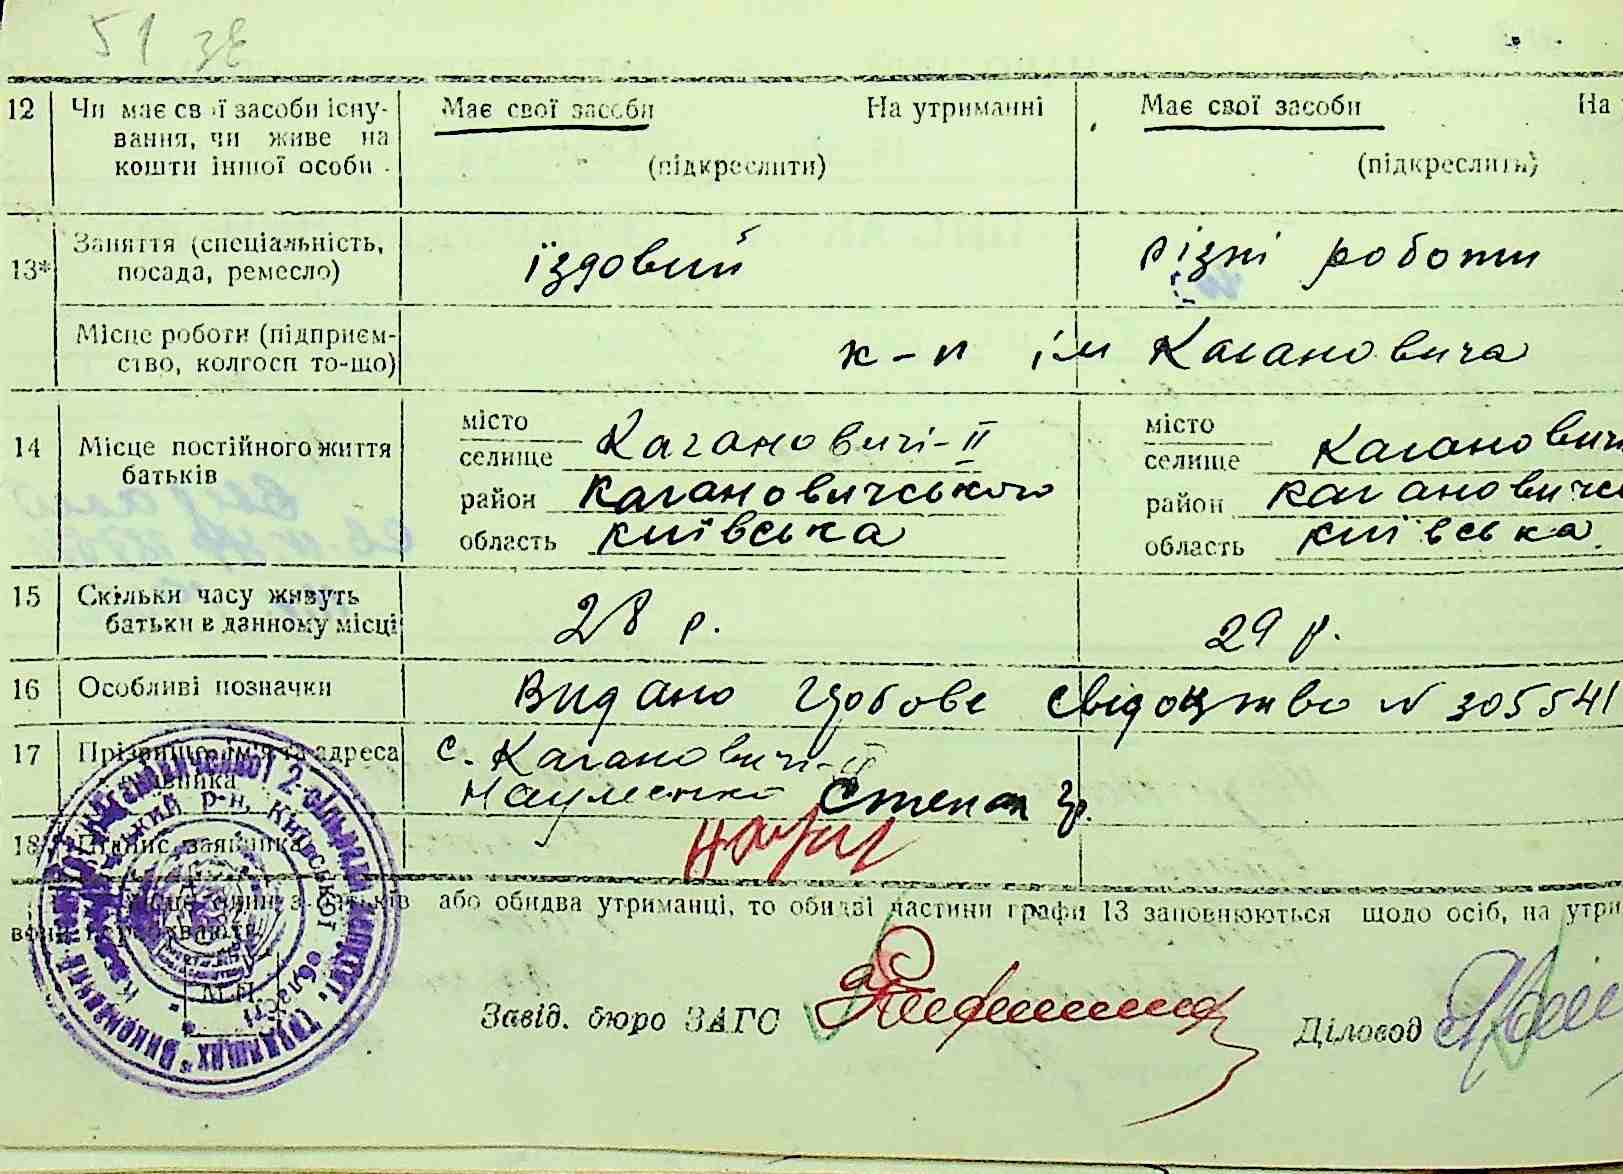 51 зв
12 Чи має свої засоби існу- Має свої засоби На утриманні Має свої засоби На
вання, чи живе на
кошти іншої особи (підкреслити) (підкреслить)
13* Заняття (спеціальність, їздовий різні роботи
посада, ремесло)
Місце роботи (підприєм- к-п ім Кагановича
ство, колгосп то-що)
місто місто
14 Місце постійного життя селище Кагановичі-II селище Каганович
батьків район Кагановичського район Кагановичсь
область київська область київська
15 Скільки часу живуть 28 р. 29 р.
батьки в данному місці
16 Особливі позначки Видано Шлюбове свідоцтво N 305541
17 Прізвище, ім'я та адреса с. Кагановичі-II
заявника Науменко Степан Гр.
18 Підпис заявника
або обидва утриманці, то обидві частини графи 13 заповнюються щодо осіб, на утри
М.П.
Завід. бюро ЗАГС Діловод